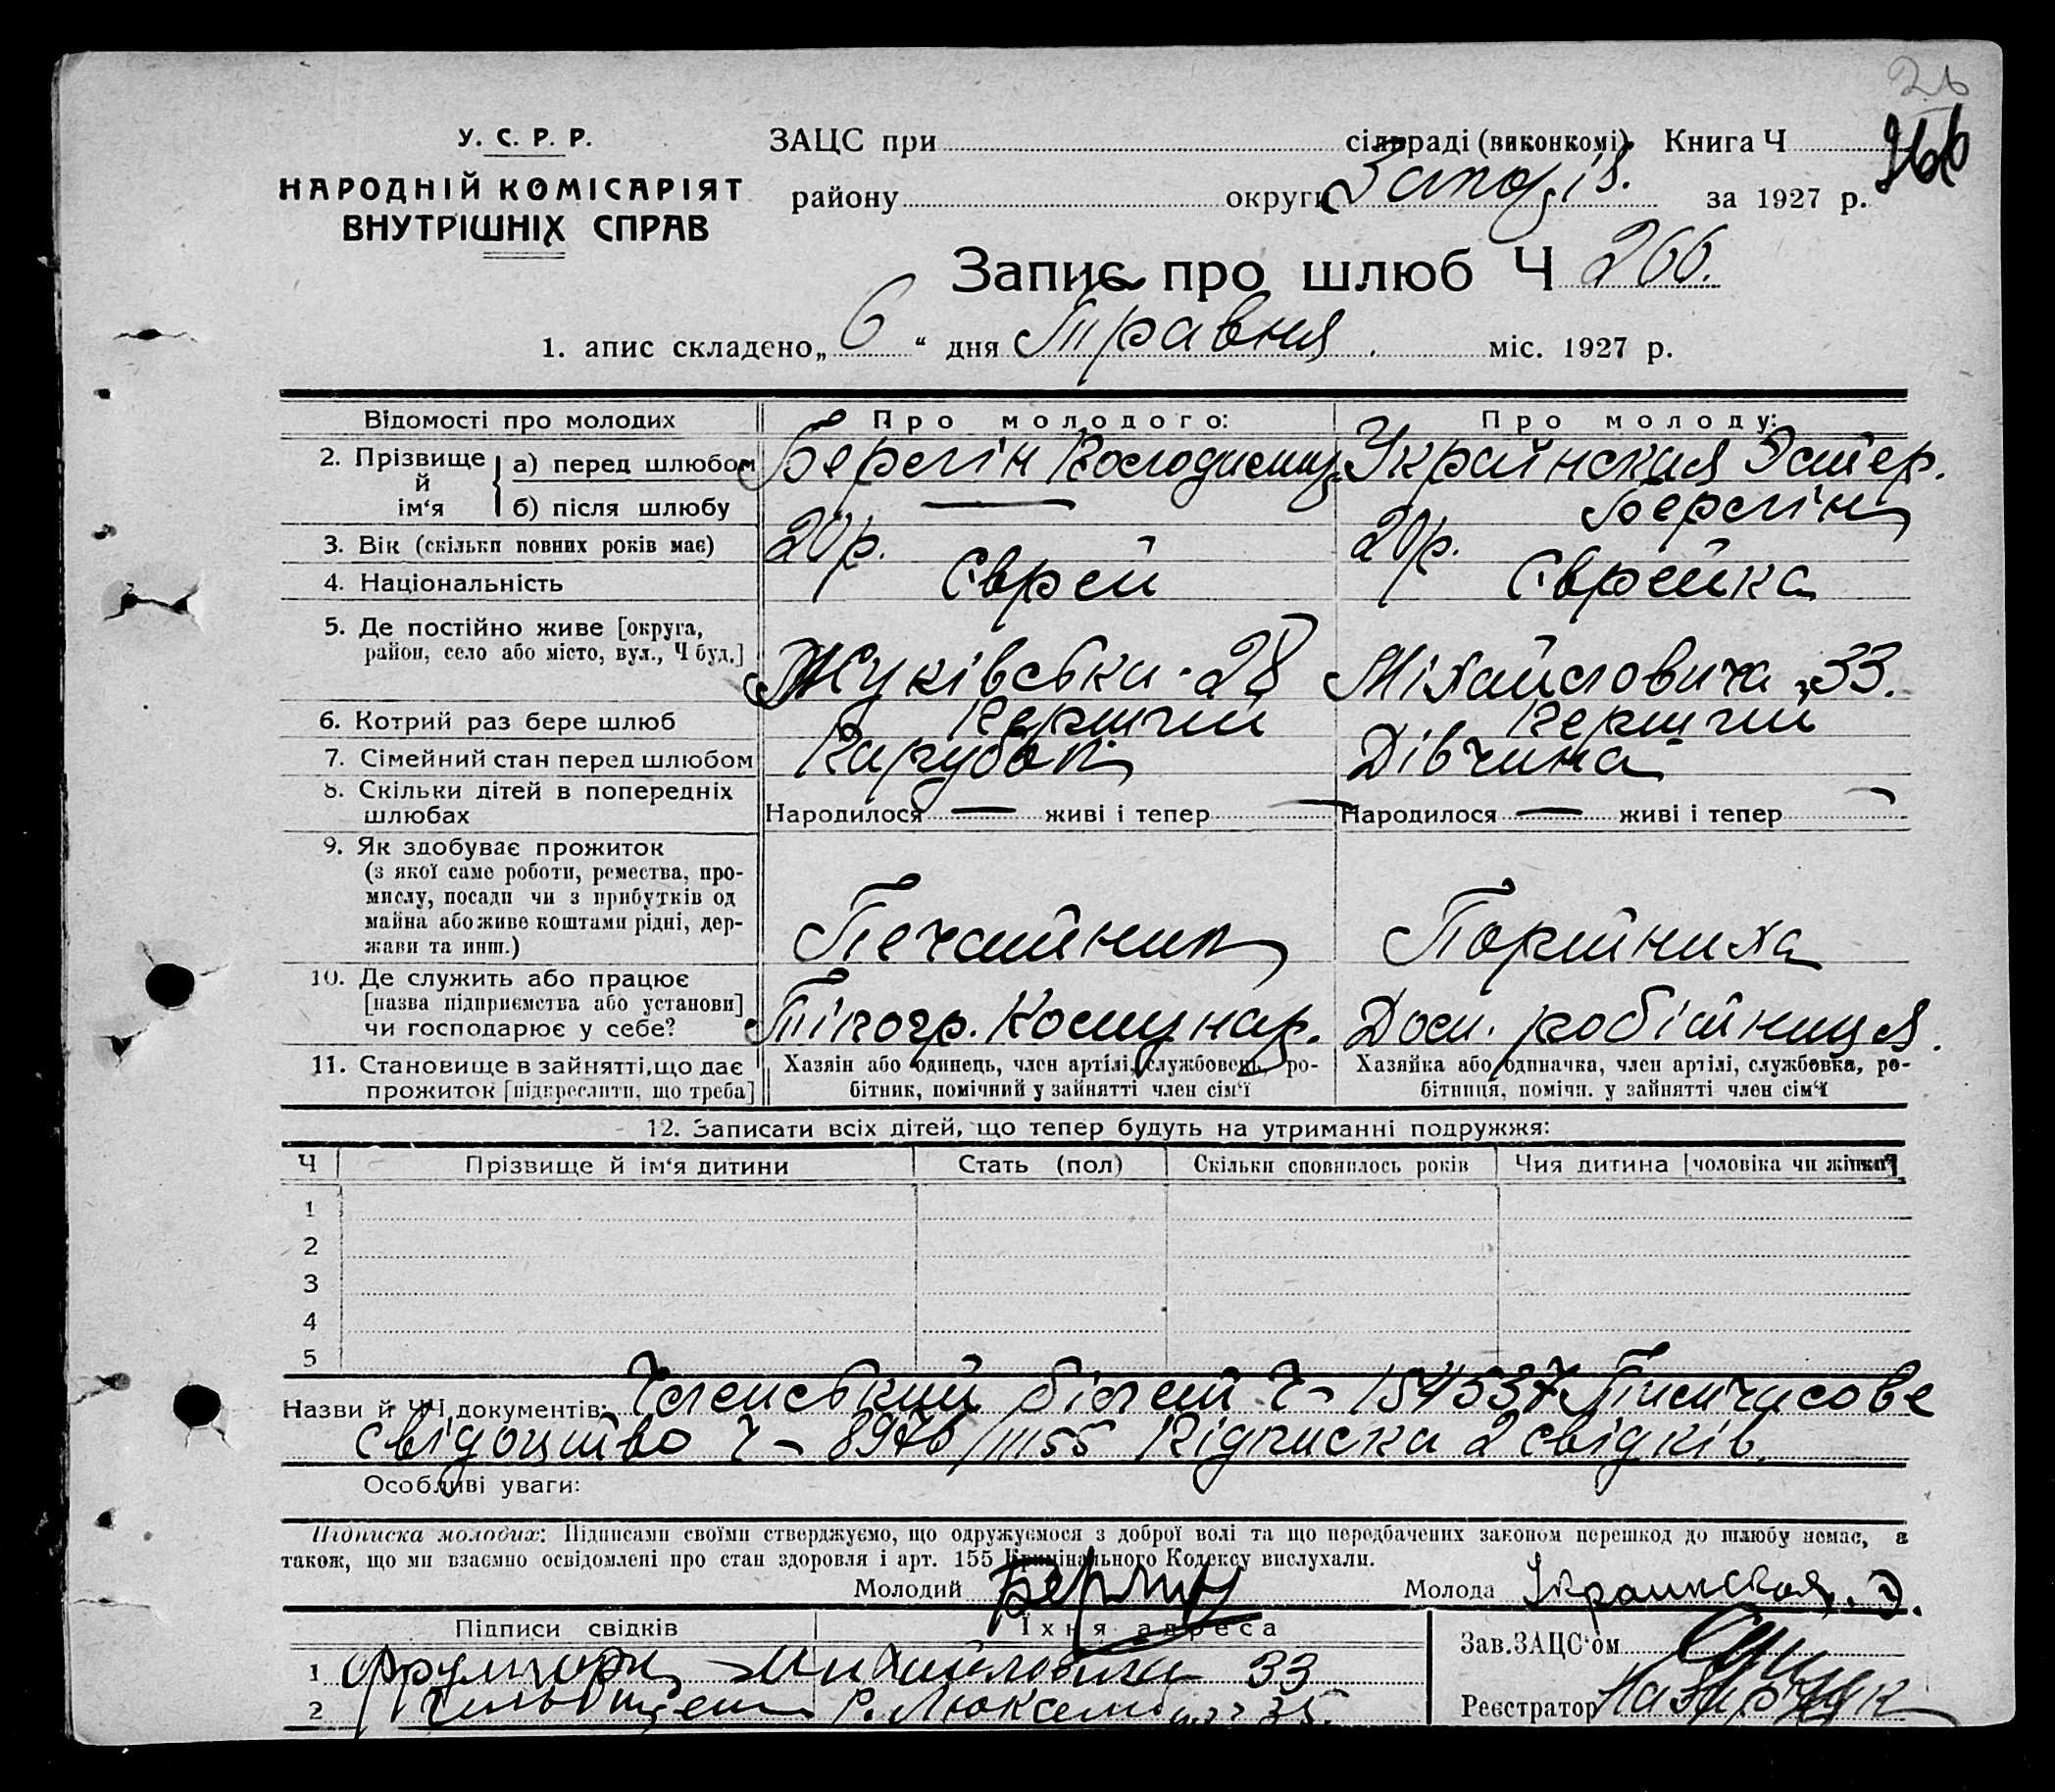 26
266
У. С. Р. Р.
НАРОДНІЙ КОМІСАРІЯТ
ВНУТРІШНІХ СПРАВ
ЗАЦС при сільраді (виконкомі). Книга Ч
району округи Запоріз. за 1927 р.
Запис про шлюб Ч 266.
1. апис складено „ 6 “ дня Травня міс. 1927 р.
Відомості про молодих Про молодого: Про молоду:
2. Прізвище й ім‘я а) перед шлюбом Берлін Володимир Українская Эстер.
б) після шлюбу — Берлін
3. Вік (скільки повних років має) 20 р. 20 р.
4. Національність Єврей Єврейка
5. Де постійно живе [округа,
район, село або місто, вул., Ч буд.] Жуківська 28 Міхайловича 33.
6. Котрий раз бере шлюб Перший Перший
7. Сімейний стан перед шлюбом Парубок Дівчина
8. Скільки дітей в попередніх
шлюбах Народилося — живі і тепер — Народилося — живі і тепер —
9. Як здобуває прожиток
(з якої саме роботи, ремества, про-
мислу, посади чи з прибутків од
майна або живе коштами рідні, дер-
жави та инш.) Печатник Портниха
10. Де служить або працює
[назва підприємства або установи]
чи господарює у себе? Тіпогр. Комунар. Дом. робітниця.
11. Становище в зайнятті, що дає
прожиток [підкреслити, що треба]
Хазяїн або одинець, член артілі, службовець, ро-
бітник, помічний у зайнятті член сім‘ї
Хазяйка або одиначка, член артілі, службовка, ро-
бітниця, помічн. у зайнятті член сім‘ї
12. Записати всіх дітей, що тепер будуть на утриманні подружжя:
Ч Прізвище й ім‘я дитини Стать (пол) Скільки сповнилось років Чия дитина [чоловіка чи жінки]
1
2
3
4
5
Назви й ЧЧ документів: Членський білет Ч – 154537 Тимчасове
свідоцтво Ч – 8976/1155 Підписка 2 свідків.
Особливі уваги:
Підписка молодих: Підписами своїми стверджуємо, що одружуємося з доброї волі та що передбачених законом перешкод до шлюбу немає, а
також, що ми взаємно освідомлені про стан здоровля і арт. 155 Кримінального Кодексу вислухали.
Молодий Берлин Молода Украинская. Э.
Підписи свідків Їхня адреса
1 Михайловича 33
2 Р. Люксембург 35.
Зав. ЗАЦС‘ом
Реєстратор